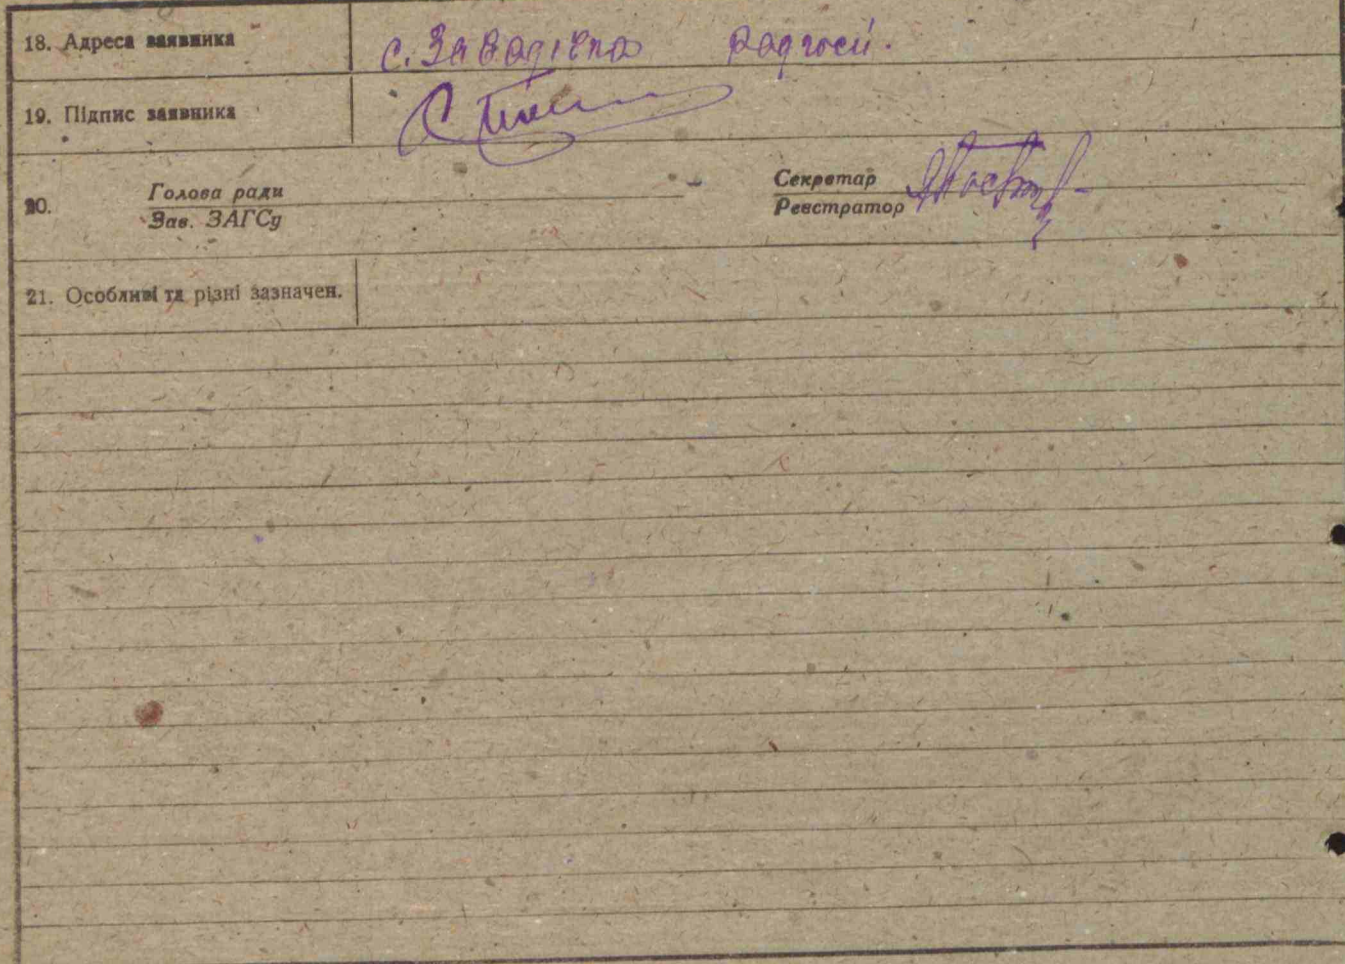 18. Адреса заявника с. Завадівка радгосп.
19. Підпис заявника
20. Голова ради Секретар
Зав. ЗАГСу Реєстратор
21. Особливі та різні зазначен.